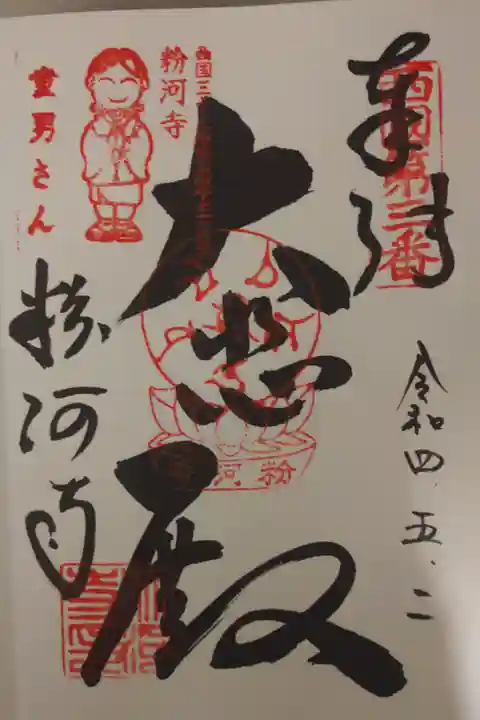 奉拝
西国第三番
令和四.五.二
大悲殿
西国三
粉河寺
童男さん
粉河
粉河寺